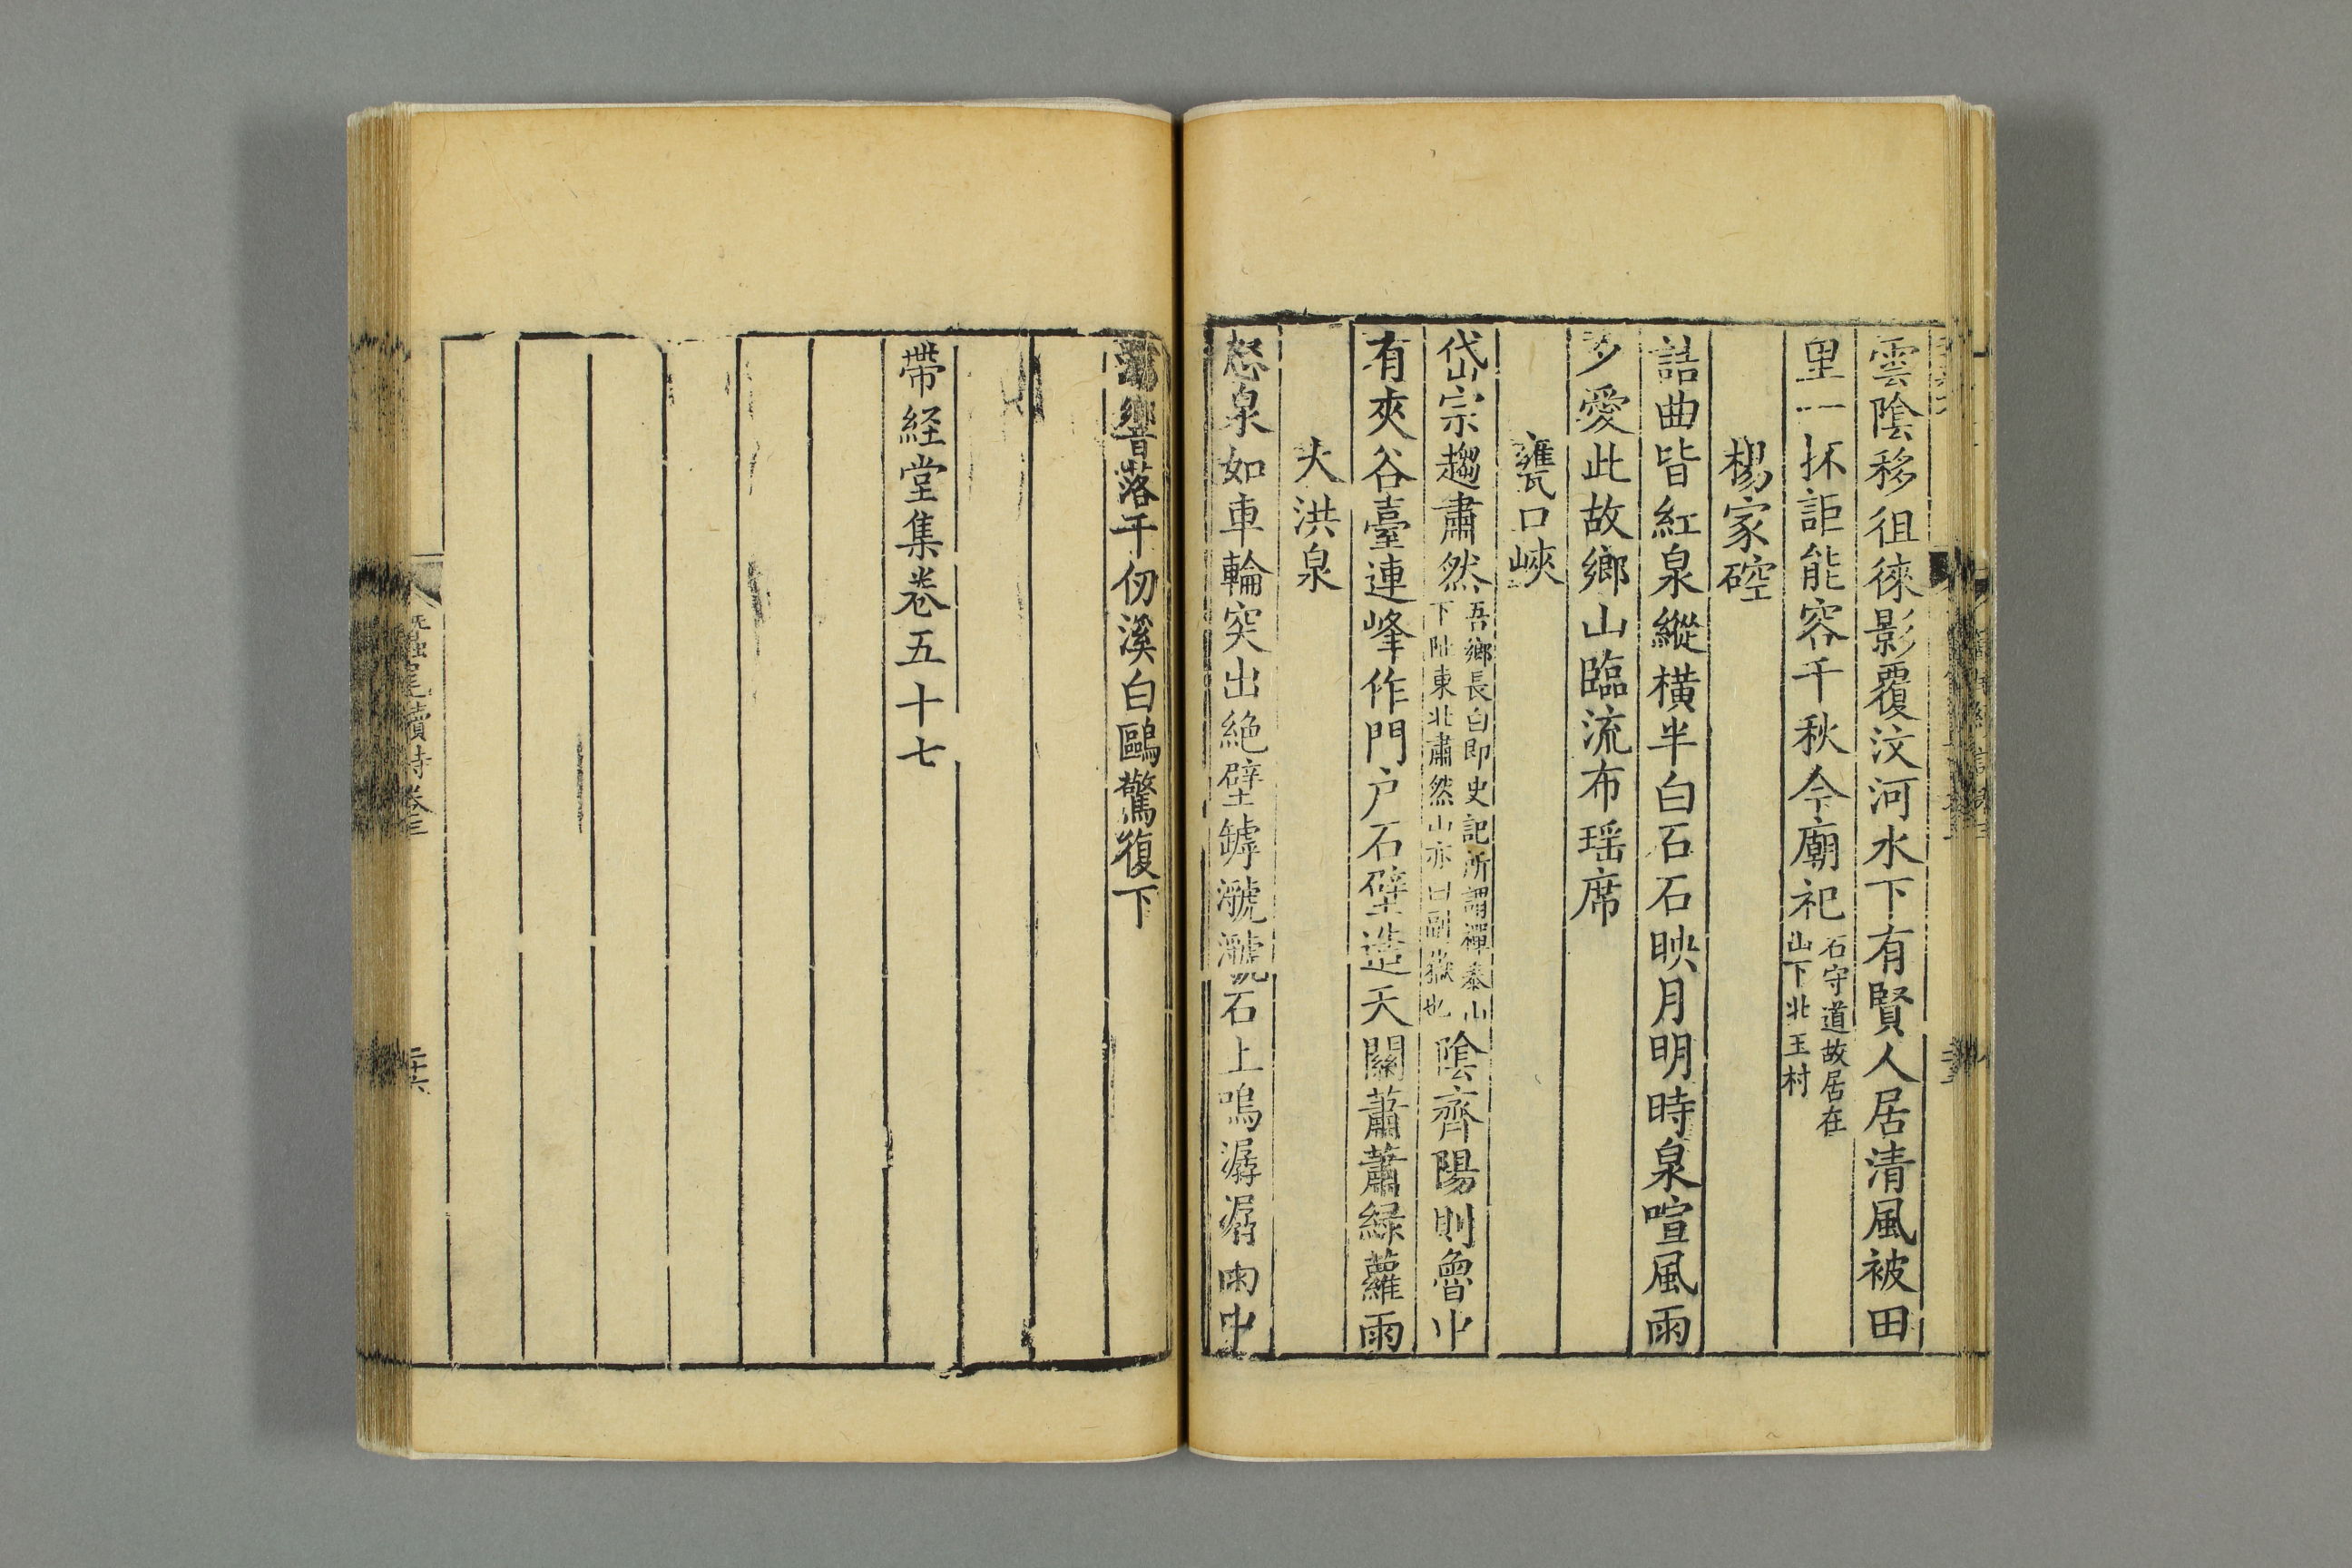 雲陰移徂徠影覆汶河水下有賢人居清風被田
里一抔詎能容千秋今廟祀石守道故居在山下北王村
楊家硿
詰曲皆紅泉縱橫半白石石映月明時泉喧風雨
夕愛此故鄉山臨流布瑶席
甕口峽
岱宗趨肅然吾鄉長白即史記所謂禪泰山下阯東北肅然山亦曰副嶽也陰齊陽則魯中
有夾谷臺連峰作門户石壁造天關蕭蕭綠蘿雨
大洪泉
怒泉如車輪突出絶壁罅瀨瀨石上鳴潺潺雨中
響落千仞溪白鷗驚復下
帶経堂集卷五十七
蠶尾續詩卷三
二十六